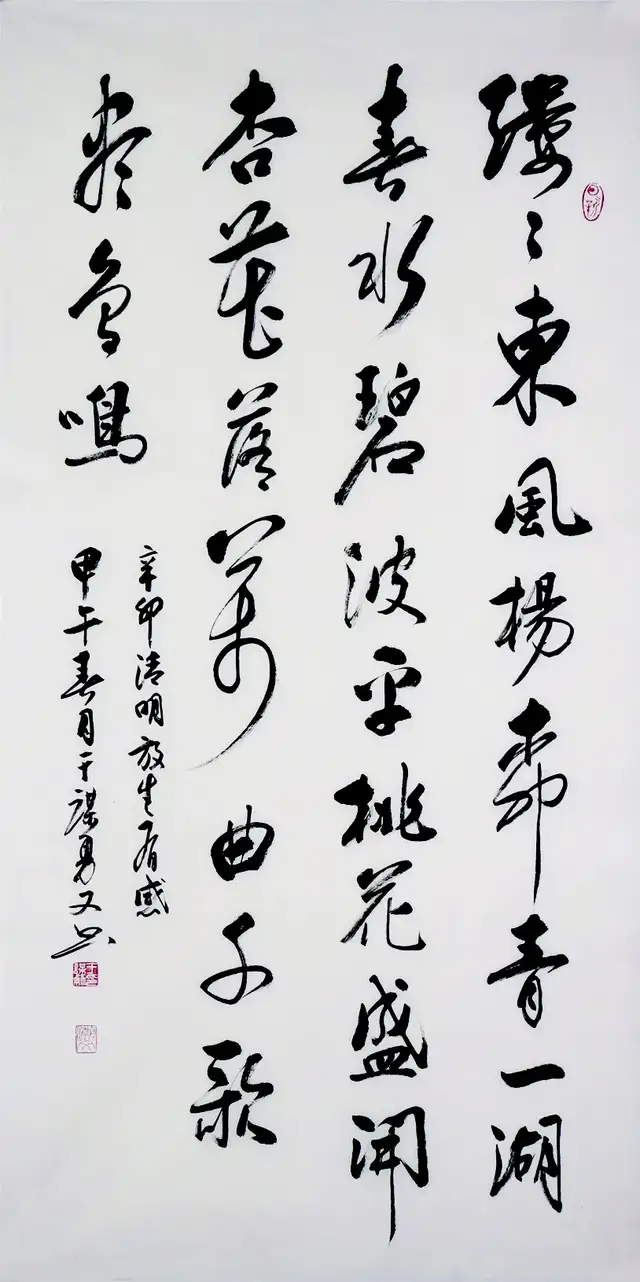 縷々東風楊柳青一湖
春水碧波平桃花盛開
杏花落萬曲千歌
盡鳥鳴
辛卯清明放生有感
甲午春月于謀勇又书